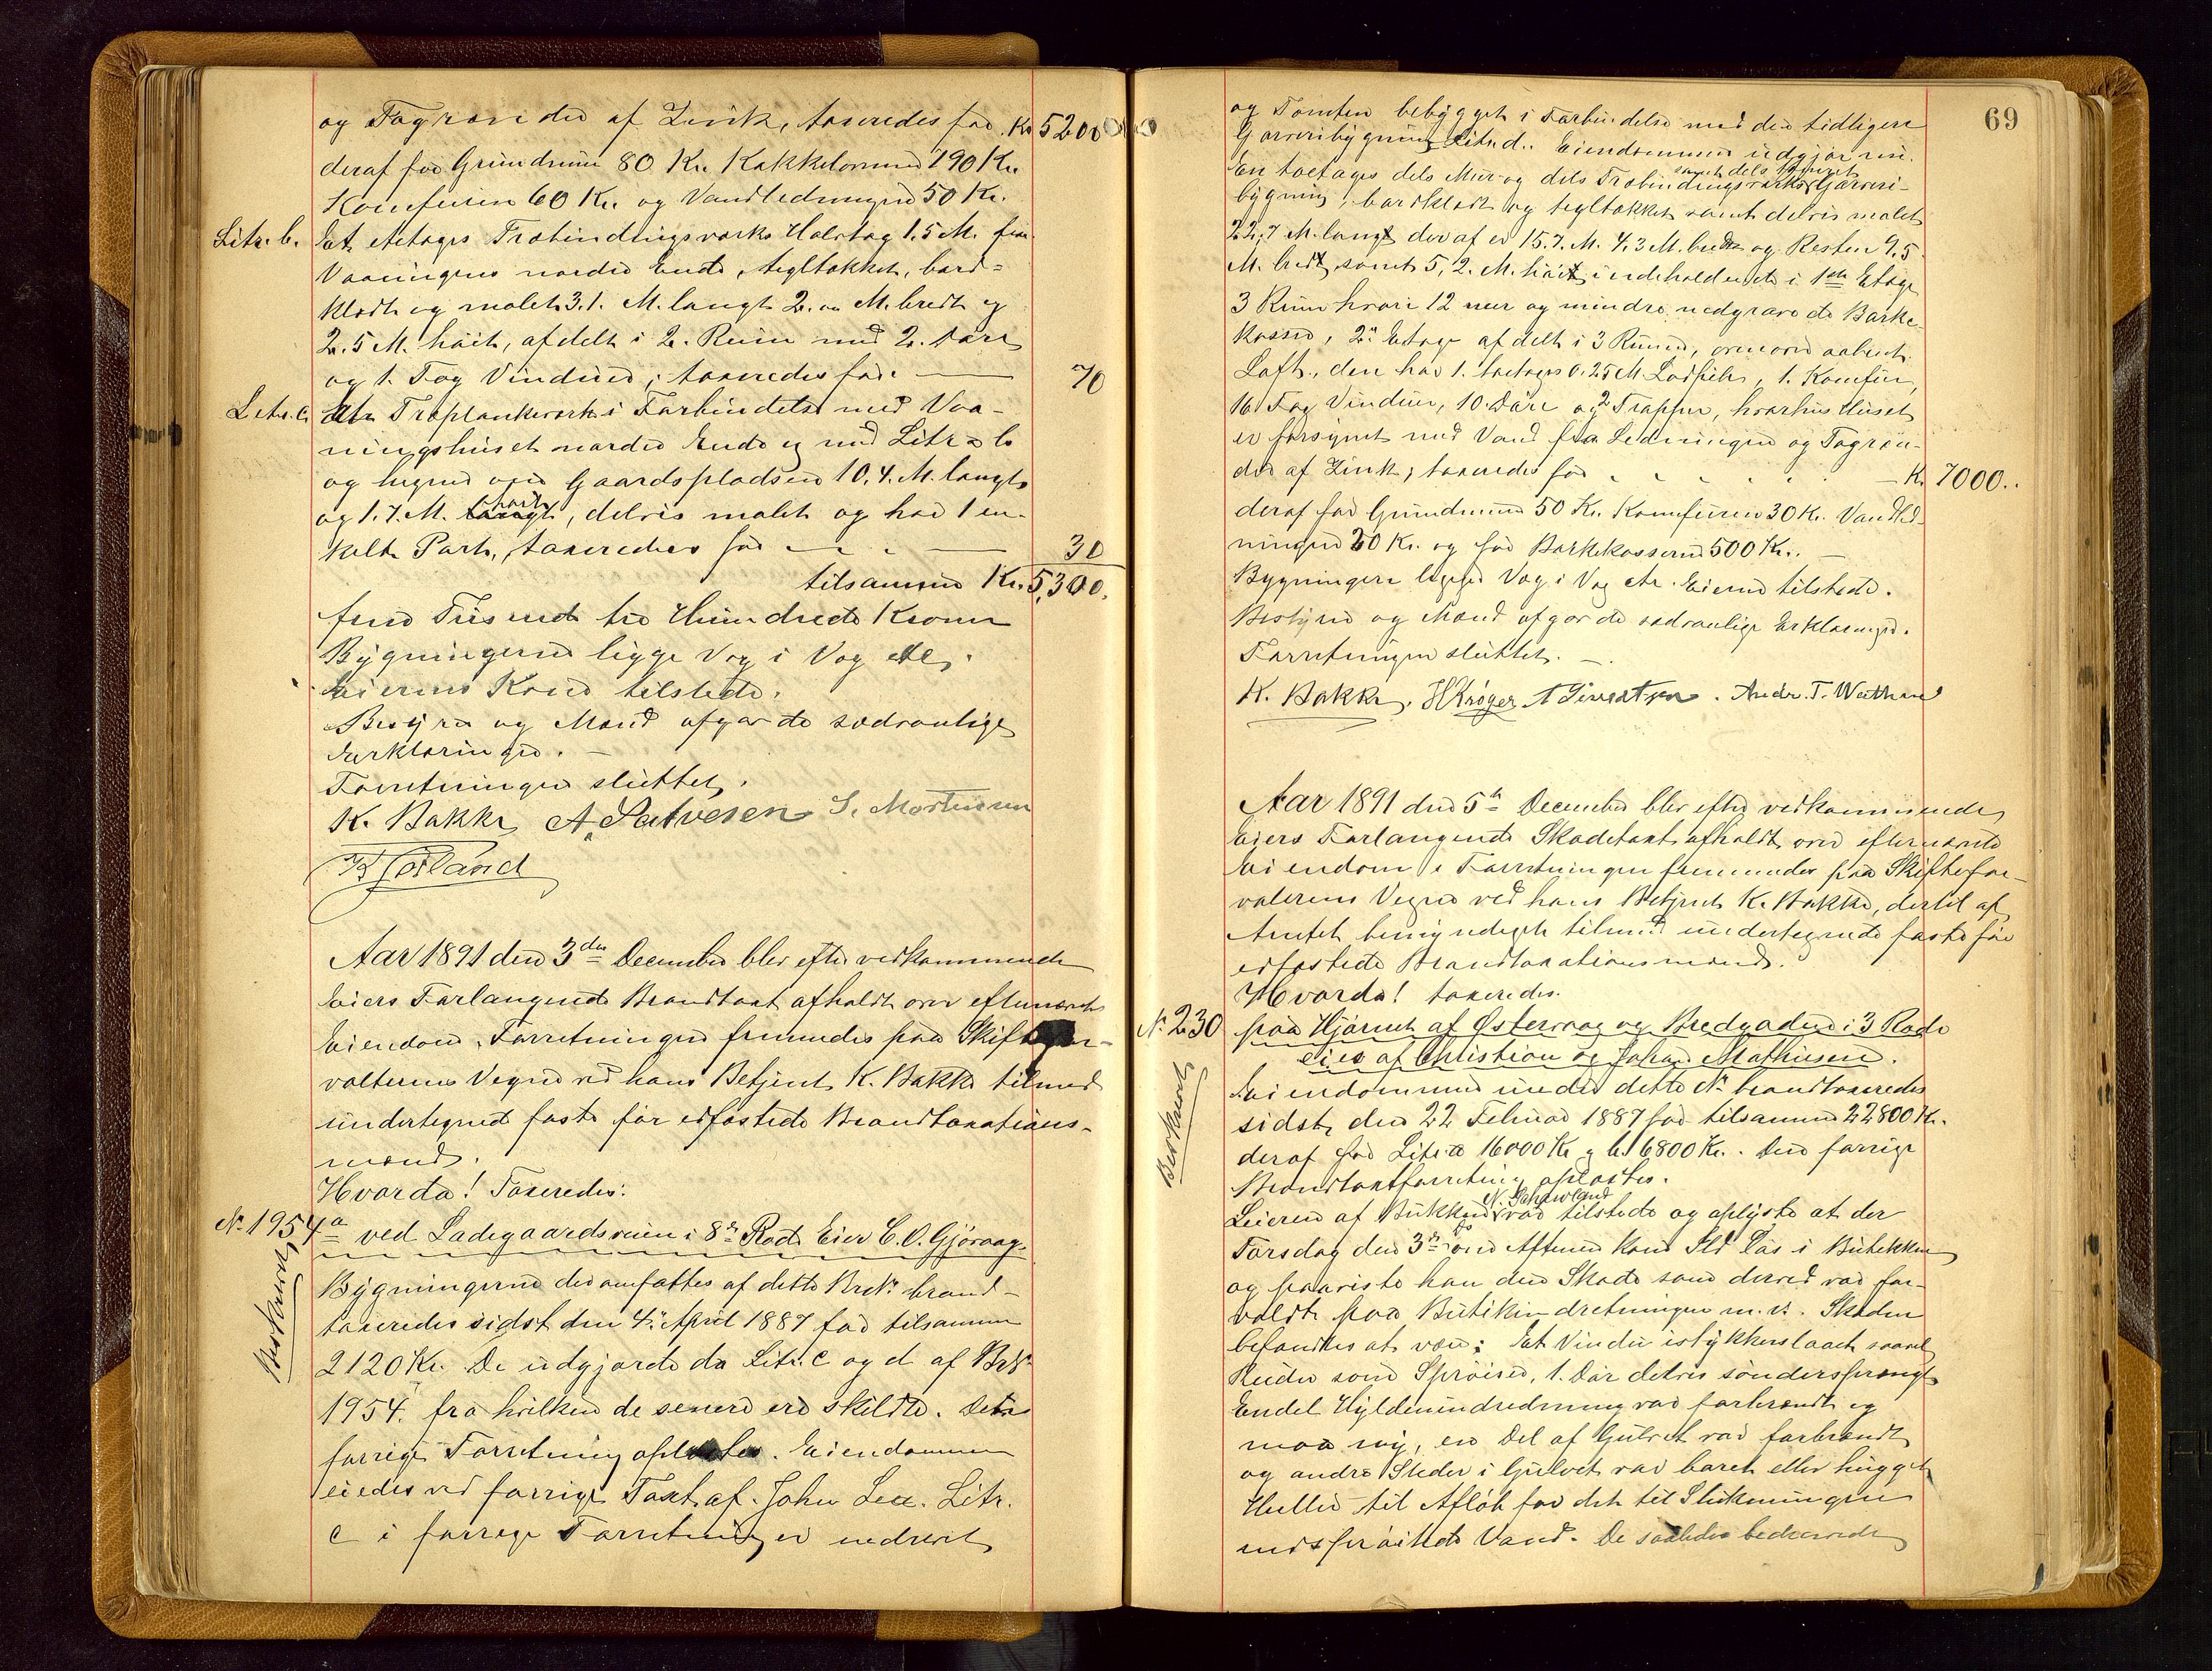 og Tagrender af Zink, taxeredes for Kr. 5200
deraf for Grundmur 80 Kr. Kakkelovnene 190 Kr.
Komfuren 60 Kr. og Vandledningen 50 Kr.
Litr. b. Et etetages Træbindingsværks 1.5 M. fra
Vaaningens nordre Ende, tegltækket, bord-
klædt og malet 3.1. M. langt 2. M. bredt og
2.5 M. höit, afdelt i 2. Rum med 2. Döre
og 1. Fag Vinduer; taxeredes for. 70
Litr. c. Et Træplankeværk i Forbindelse med Vaa-
ningshuset nordre Ende og med Litr. b
og hegner om Gaardspladsen 10.4. M. langt
og 1.7. M. höit, delvis malet og har 1 en-
kelt Port, taxeredes for 30
tilsammen Kr. 5,300.
fem Tusend tre Hundrede Kroner
Bygningerne ligge Væg i Væg
Eierens Kone tilstede.
Bestyrer og Mænd afgav de sædvanlige
Erklæringer.
Forretningen sluttet.
K. Bakke A. Salvesen S. Mortensen
Aar 1891 den 3die December blev efter vedkommende
Eiers Forlangende Brandtaxt afholdt over efternævnte
Eiendom. Forretningen fremmedes paa Skiftefor-
valterens Vegne ved hans Betjent K. Bakke tilmed
undertegnede faste før edfæstede Brandtaxations-
mænd.
Hvorda! Taxeredes:
No. 1954a ved Ladegaardsveien i 8de Rode Eier C. O. Gjöraag.
Beskrevet
Bygningerne der omfattes af dette BrNo. brand-
taxeredes sidst den 4. April 1887 for tilsammen
2120 Kr. De udgjorde da Litr. c og d af BrNo
1954. fra hvilken de senere ere skildte. Den
forrige Forretning oplæstes. Eiendommen
eiedes ved forrige Taxt af John Lea. Litr.
c i forrige Forretning er nedrevet
69
og Tomten bebygget i Forbindelse med den tidligere
Garveribygning Litr. d. Eiendommen udgjør nu.
En toetages dels Mur og dels Træbindingsværks samt dels Garveri-
bygning, bordklædt og tegltækket samt delvis malet
22,7 M. langt deraf er 15.7. M. 4,3 M. bredt og Resten 9,5
M. bredt samt 5,2. M. höit indeholdende i 1ste Etage
3 Rum hvori 12 mer og mindre nedgravede Barke-
kasser, 2n Etage afdelt i 3 Rum, ovenover aabent
Loft, den har 1. toetages 0.25 M. Ladpibe, 1. Komfur,
16 Fag Vinduer, 10 Döre og 2 Trapper, hvorhos Huset
er forsynet med Vand fra Ledningen og Tagren-
der af Zink; taxeredes for Kr. 7000..
deraf for Grundmur 50 Kr. Komfuren 30 Kr. Vandled-
ningen 20 Kr. og for Barkekasserne 500 Kr.
Bygningen ligger Væg i Væg Eieren tilstede.
Bestyrer og Mænd afgav de sædvanlige Erklæringer.
Forretningen sluttet.
K. Bakke. H Krøger A Sivertsen. Andr. T. Watne
Aar 1891 den 5te December blev efter vedkommende
Eiers Forlangende Skadetaxt afholdt over efternævnte
Eiendom. Forretningen fremmedes paa Skiftefor-
valterens Vegne ved hans Betjent K. Bakke, dertil af
Amtet bemyndiget tilmed undertegnede faste før
edfæstede Brandtaxationsmænd.
Hvorda! taxeredes.
No. 230 paa Hjørnet af Østervaag og Bredgaden i 3 Rode
eies af Christian og Johan Mathisen.
Beskrevet
Eiendommen under dette No. brandtaxeredes
sidst den 22 Februar 1887 for tilsammen 22800 Kr.
deraf for Litr. a 16000 Kr og b. 6800 Kr. Den forrige
Brandtaxtforretning oplæstes.
Leieren af Butikken N. var tilstede og oplyste at der
Torsdag den 3de om Aftenen kom Ild løs i Butikken
og paaviste han den Skade som derved var for-
voldt paa Butikindretningen m. v. Skaden
befandtes at være: Et Vindu istykkerslaaet saavel
Ruder som Sprösser, 1. Dör delvis sönderssprængt
Endel Hyldeindredning var forbrændt og
maa ny, en Del af Gulvet var forbrændt
og andre Steder i Gulvet var boret eller hugget
Huller til Afløb for det til Slukningen
indsprøitede Vand. De saaledes